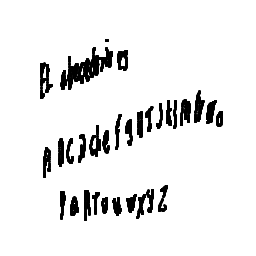 El abecedario es
A B C D d e f g H I J K l M N Ñ o
P Q R T o u v w x y Z